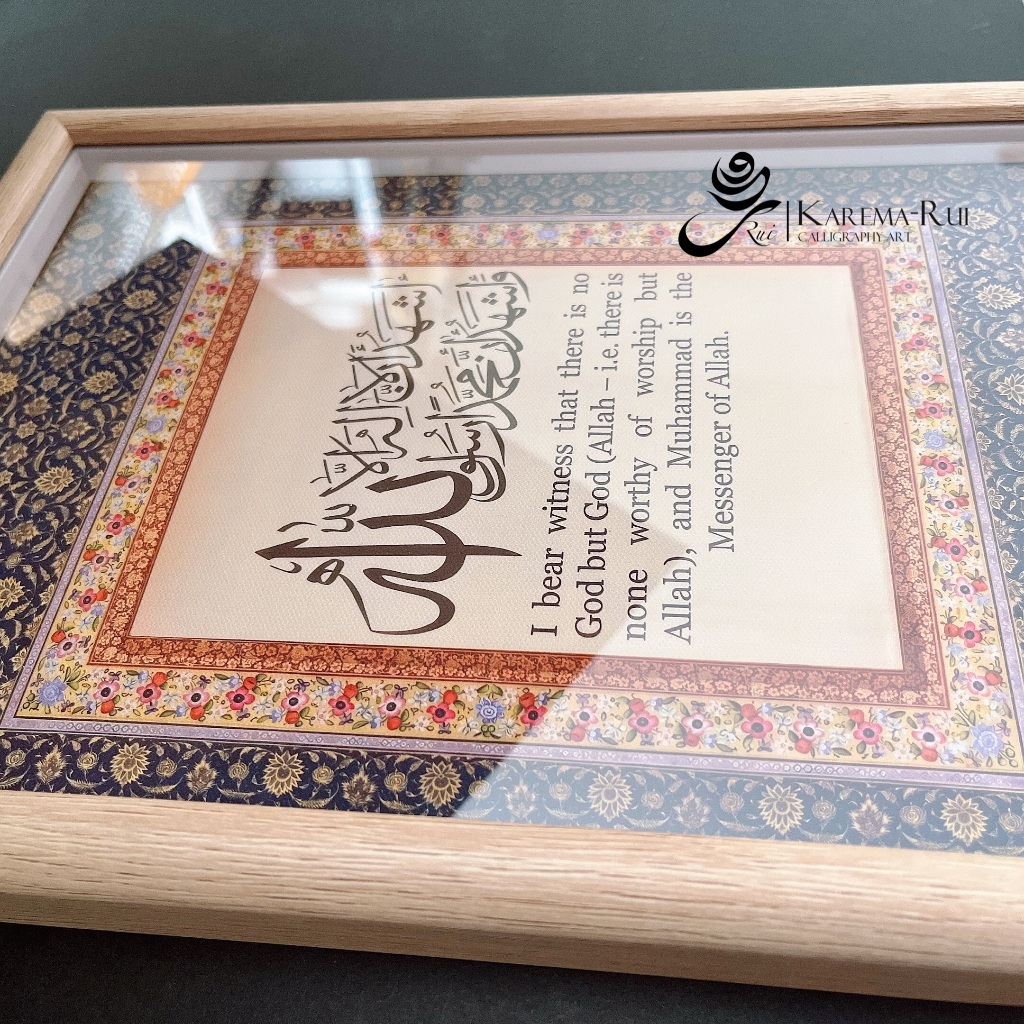 أشهد أن لا إله إلا
وأشهد أن محمدا رسول
الله
I bear witness that there is no
God but God (Allah – i.e. there is
none worthy of worship but
Allah), and Muhammad is the
Messenger of Allah.
Rui | KAREMA-RUI
CALLIGRAPHY ART